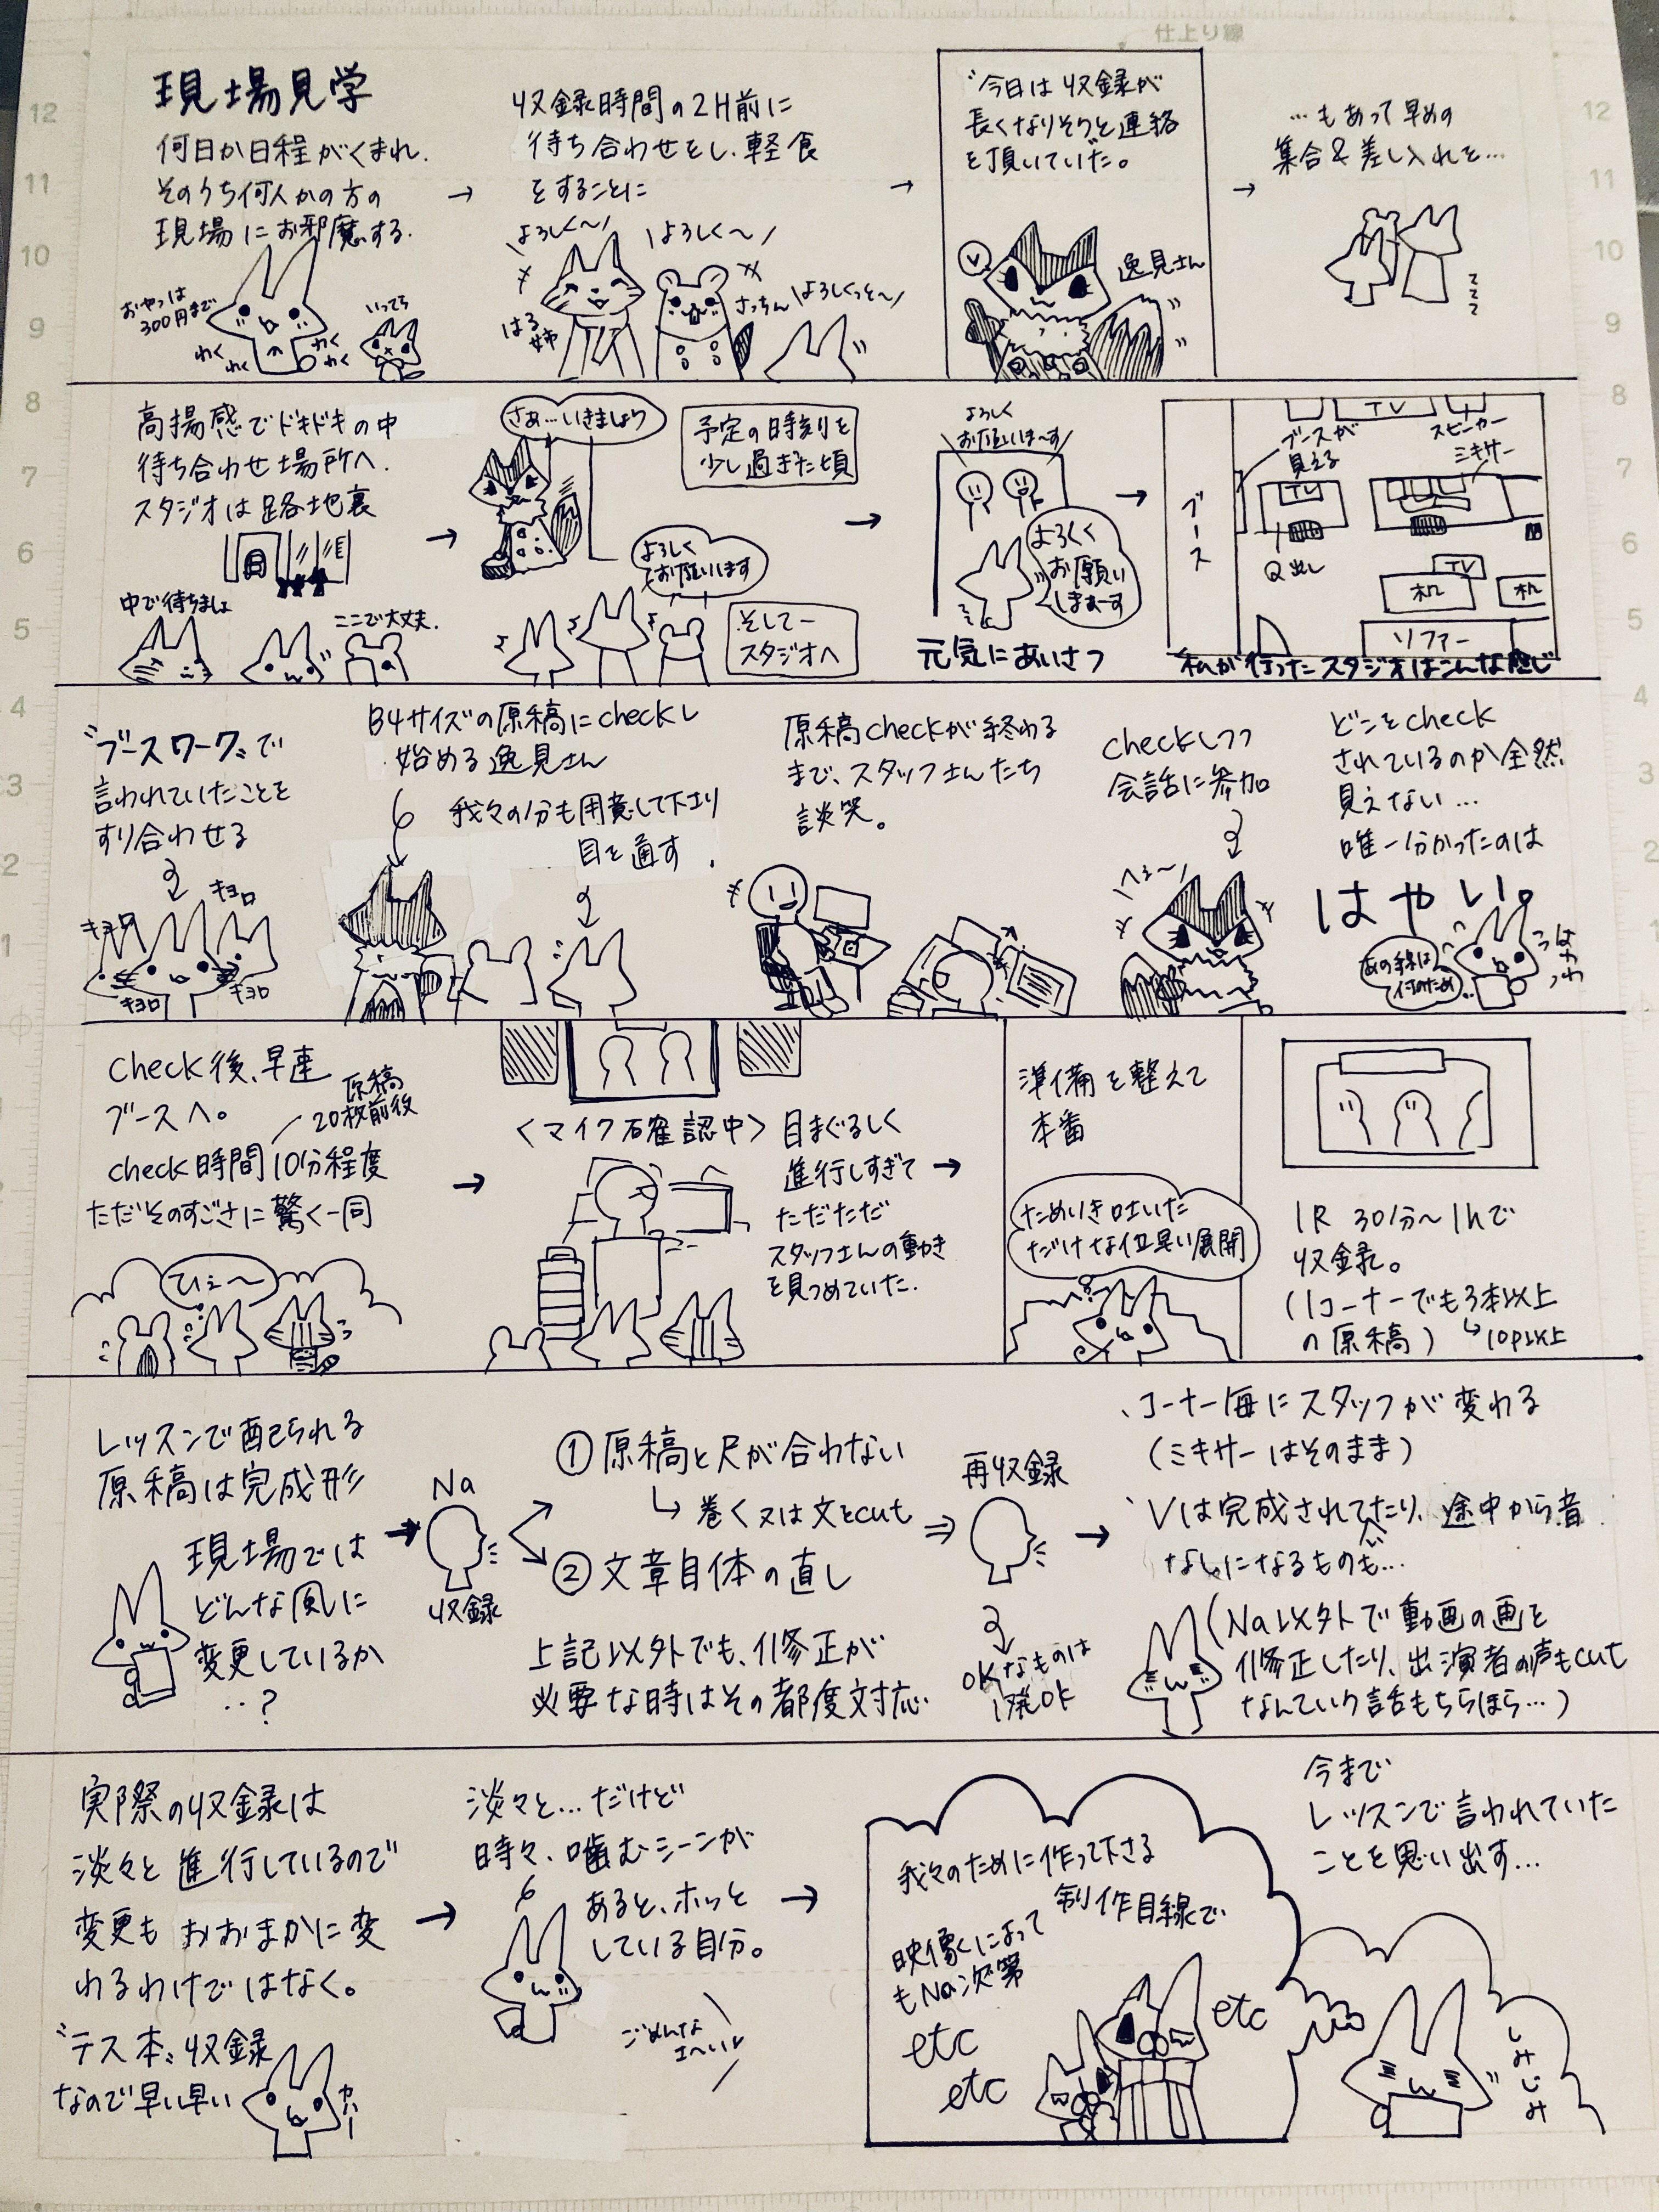 仕上り線
現場見学
何日か日程がくまれ、
そのうち何人かの方の
現場にお邪魔する。
おやつは
300円まで
わく
わく
わく
わく
いってら
→
収録時間の2H前に
待ち合わせをし、軽食
をすることに
よろしく〜
よろしく〜
はる
姉
さっちん
よろしくっそ〜
→
〝今日は収録が
長くなりそうと連絡
を頂いていた。
逸見さん
→
…もあって早めの
集合&差し入れを…
高揚感でドキドキの中
待ち合わせ場所へ。
スタジオは路地裏
中で待ちましょ
ここで大丈夫。
→
さぁ…いきましょう
予定の時刻を
少し過ぎた頃
よろしく
お願いします
そしてー
スタジオへ
→
よろしく
お願いしま〜す
よろしく
お願い
しまぁーす
元気にあいさつ
→
ブース
ブースが
見える
TV
スピーカー
ミキサー
TV
Q出し
TV
机
机
ソファー
私が行ったスタジオはこんな感じ
〝ブースワーク〟で
言われていたことを
すり合わせる
キョロ
キョロ
キョロ
キョロ
B4サイズの原稿にcheckし
始める逸見さん
我々の分も用意して下さり
目を通す。
原稿checkが終わる
まで、スタッフさんたち
談笑。
checkしつつ
会話に参加
へぇ〜
どこをcheck
されているのか全然
見えない…
唯一分かったのは
はやい。
あの線は
何のため…
はわわ
check後、早速
ブースへ。
原稿
20枚前後
check時間10分程度
ただそのすごさに驚く一同
ひぇ〜
→
<マイク確認中>
目まぐるしく
進行しすぎて
ただただ
スタッフさんの動き
を見つめていた。
→
準備を整えて
本番
ためいき吐いた
だけな位早い展開
1R 30分〜1hで
収録。
(1コーナーでも3本以上
の原稿)
↳10p以上
レッスンで配られる
原稿は完成形
現場では
どんな風に
変更しているか
…?
→
Na
収録
①原稿と尺が合わない
↳巻く又は文をcut
②文章自体の直し
上記以外でも、修正が
必要な時はその都度対応。
⇒
再収録
OKなものは
1発OK
→
、コーナー毎にスタッフが変わる
(ミキサーはそのまま)
、Vは完成されてたり、途中から音
なしになるものも…
(Na以外で動画の画を
修正したり、出演者の声もcut
なんていう話もちらほら…)
実際の収録は
淡々と進行しているので
変更もおおまかに変
わるわけではなく。
〝テス本〟収録
なので早い早い
→
淡々と…だけど
時々、噛むシーンが
あると、ホッと
している自分。
ごめんな
さーい
→
我々のために作って下さる
制作目線で
映像によって
もNa次第
etc
etc
etc
今まで
レッスンで言われていた
ことを思い出す…
しみじみ
12
11
10
9
8
7
6
5
4
3
2
1
12
11
10
9
8
7
6
5
4
3
2
1